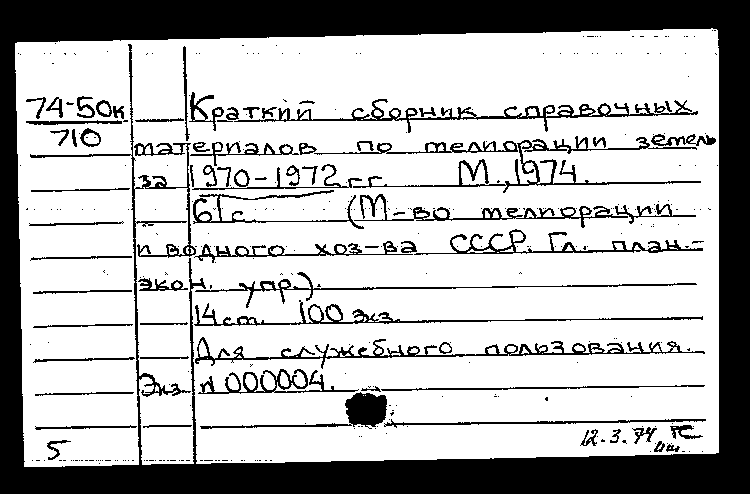 74-50к Краткий сборник справочных
710
материалов по мелиорации земель
за 1970-1972 гг. М., 1974.
61 с. (М-во мелиорации
и водного хоз-ва СССР. Гл. план.-
экон. упр.).
14 см. 100 экз.
Для служебного пользования.
Экз. N 000004.
5 12.3.74